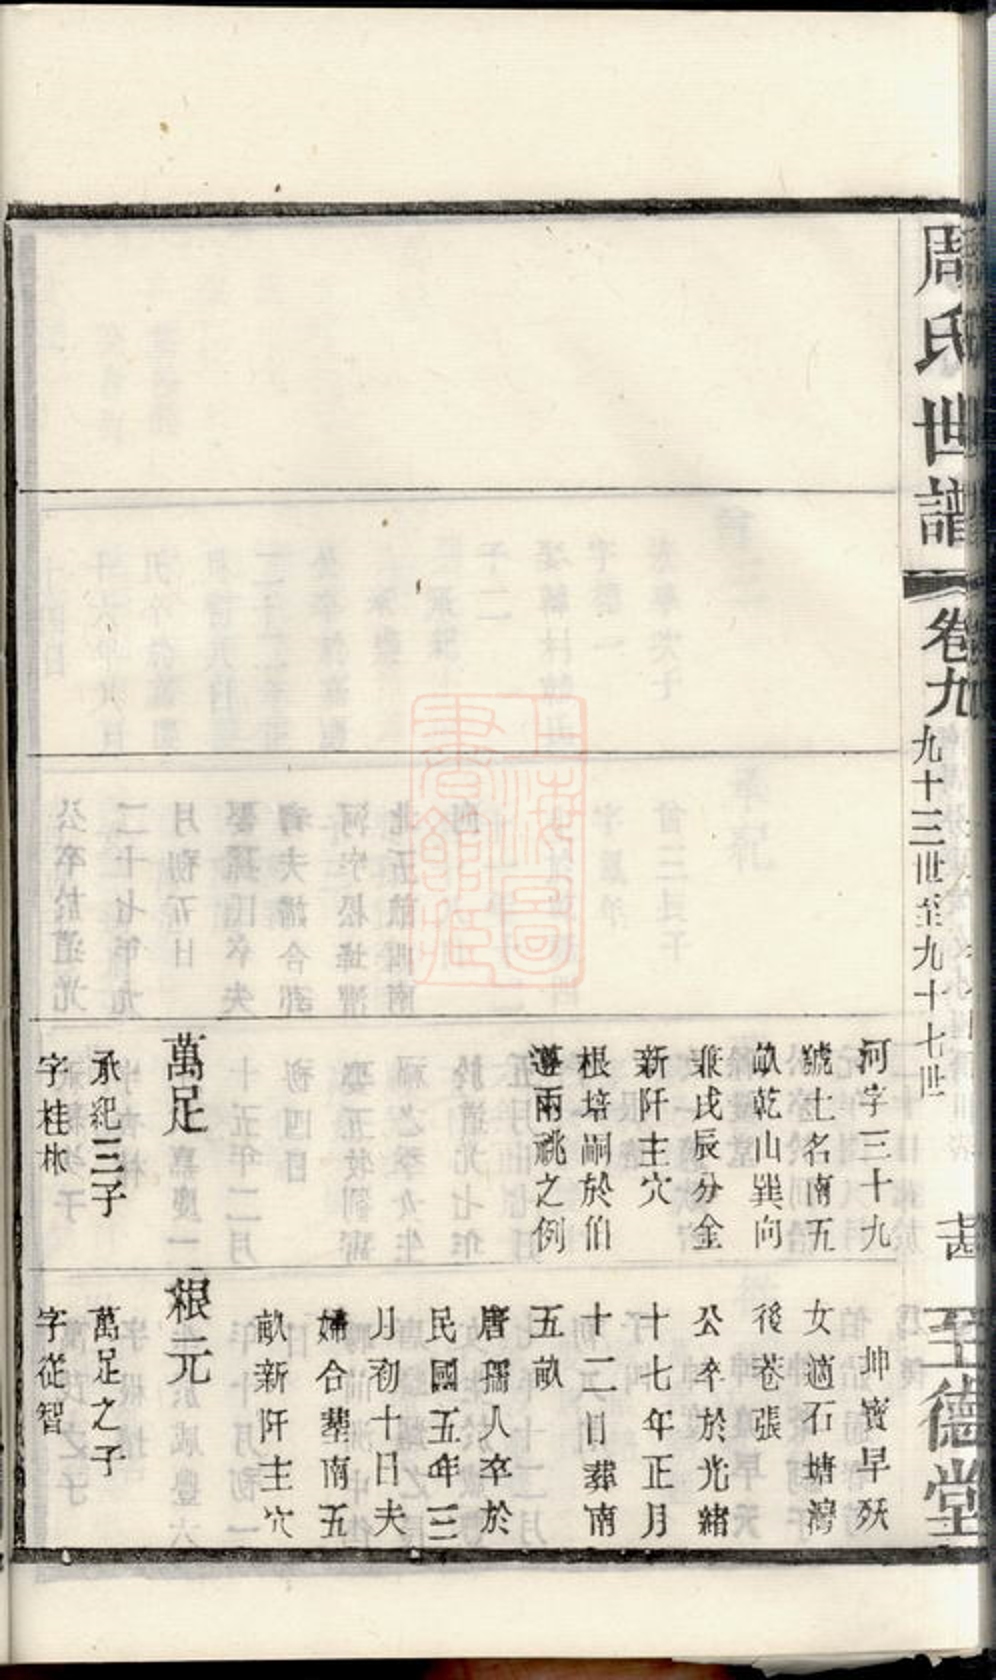 周氏世譜
卷九
九十三世至九十七世
至德堂
河字三十九
號土名南五
畝乾山巽向
兼戌辰分金
新阡主穴
根培嗣於伯
遵兩祧之例
萬足
承紀三子
字桂林
坤寶早殀
女適石塘灣
後巷張
公卒於光緒
十七年正月
十二日葬南
五畝
唐孺人卒於
民國五年三
月初十日夫
婦合葬南五
畝新阡主穴
根元
萬足之子
字從智
上海圖書館藏